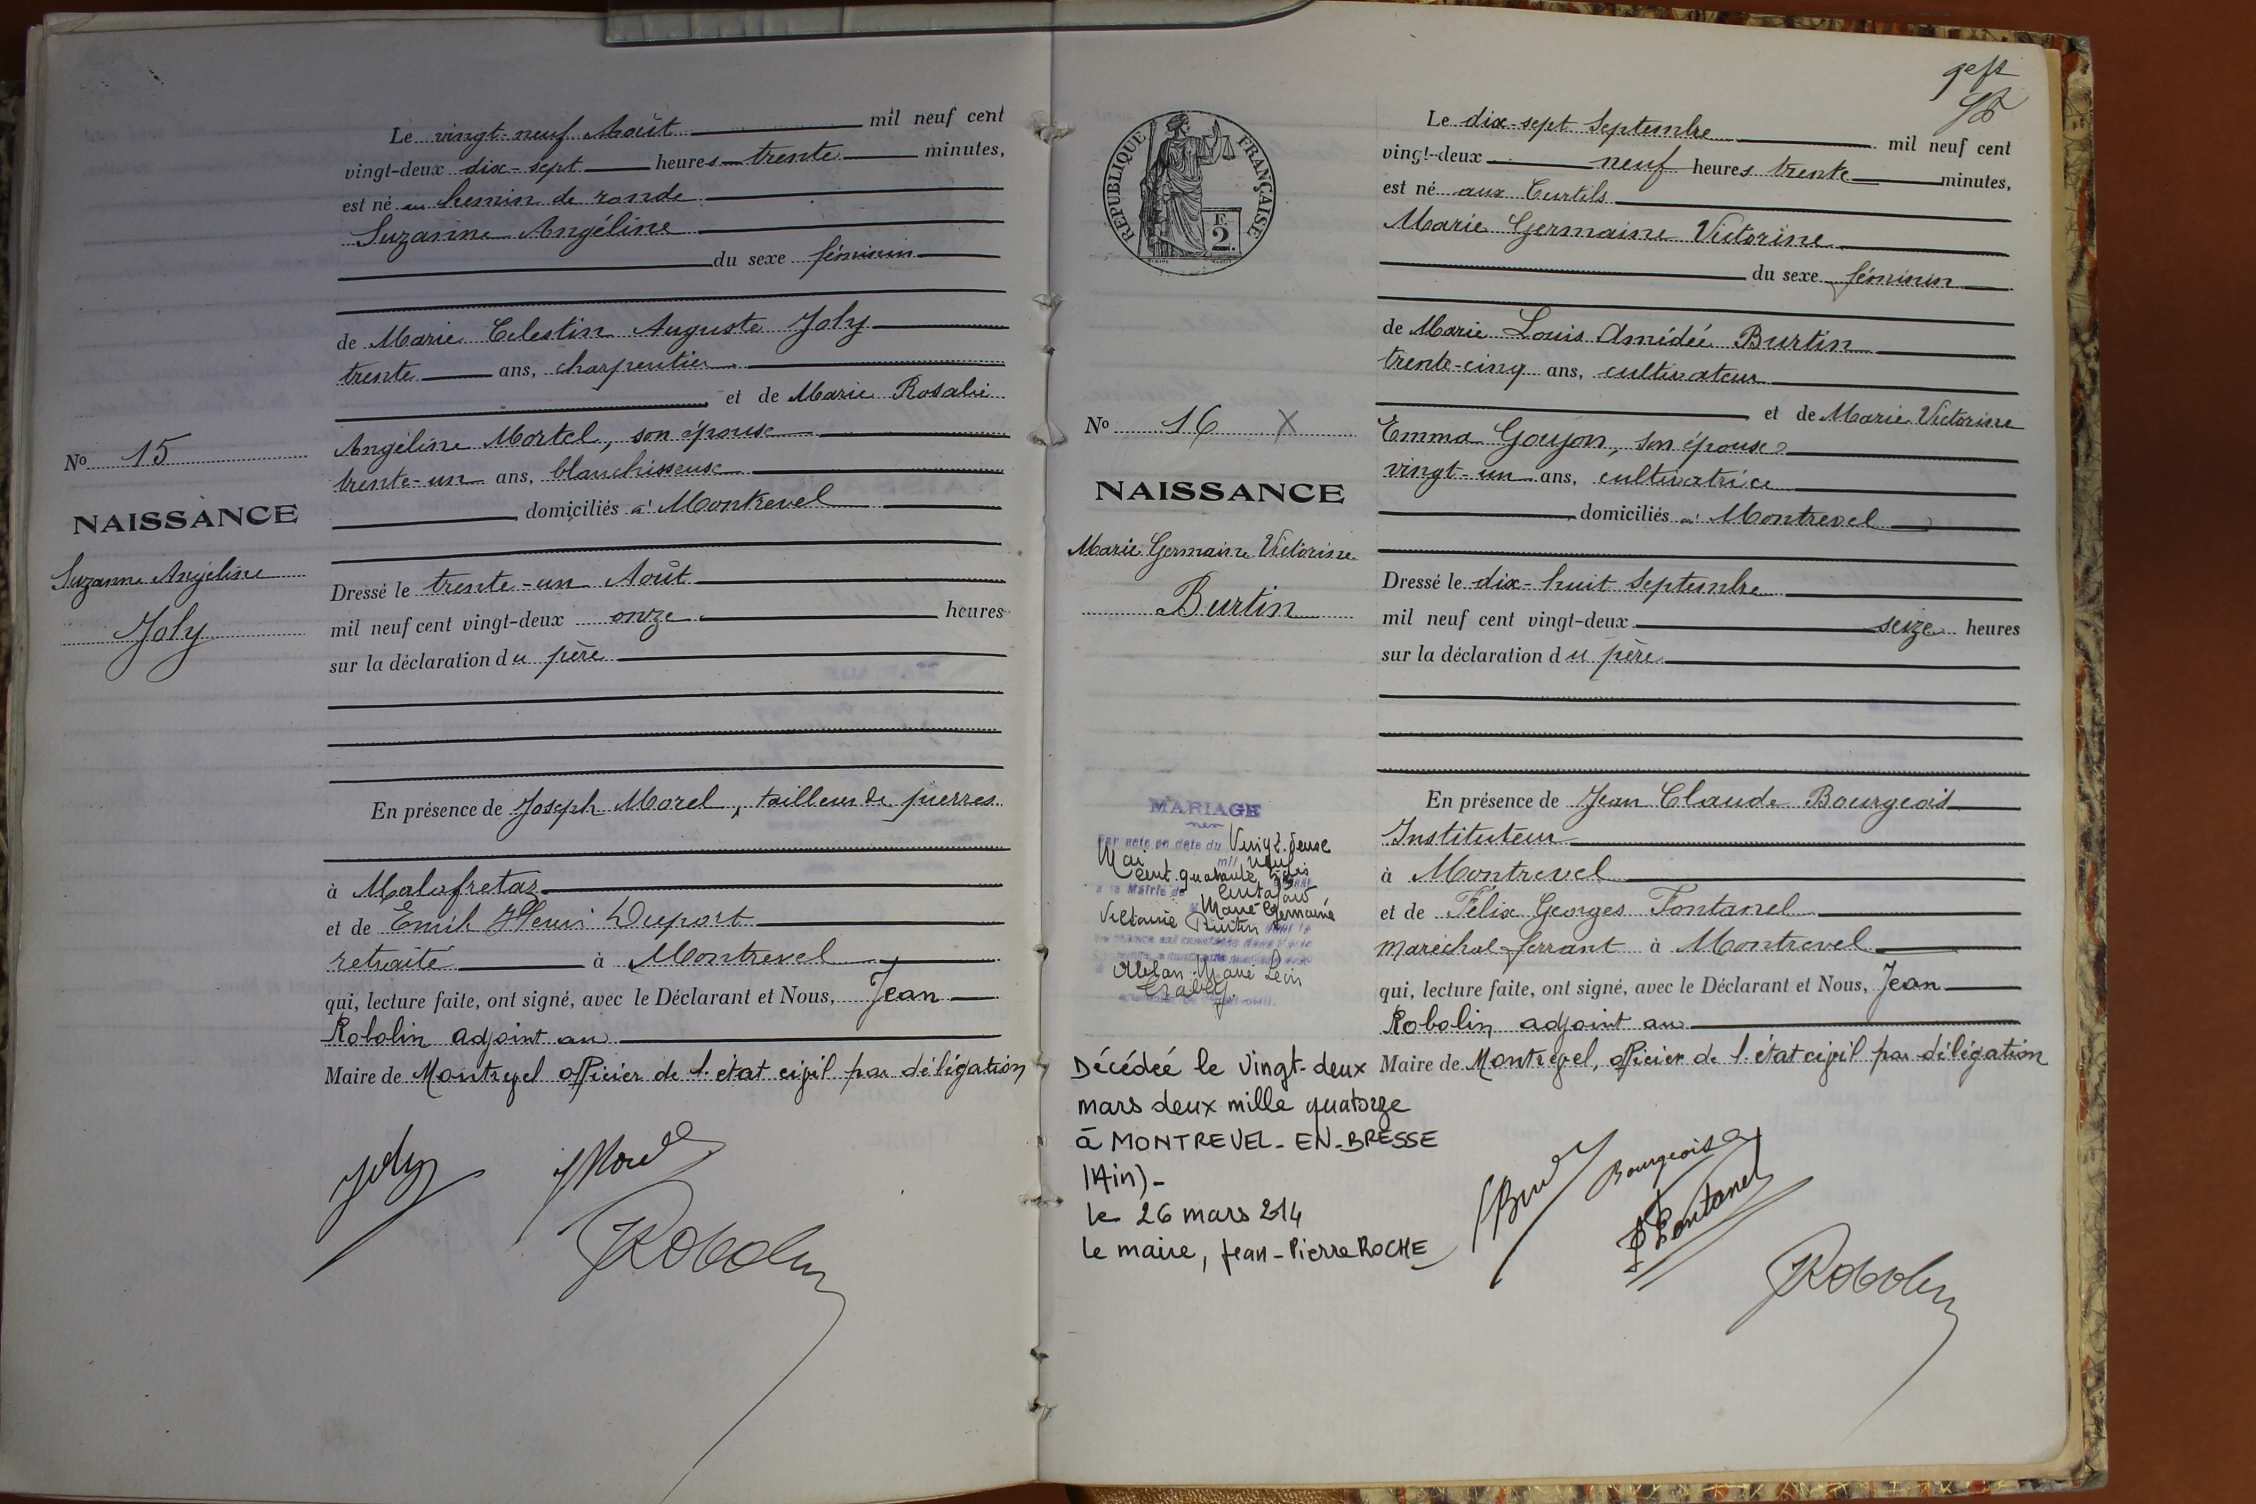 Le vingt-neuf Août mil neuf cent
vingt-deux dix-sept heures trente minutes,
est né au chemin de ronde
Suzanne Angéline
du sexe féminin
de Marie Celestin Auguste Joly
trente ans, charpentier
et de Marie Rosalie
Angéline Mortel, son épouse
trente-un ans, blanchisseuse
domiciliés à Montrevel
No 15
NAISSANCE
Suzanne Angéline
Joly
Dressé le trente-un Août
mil neuf cent vingt-deux onze heures
sur la déclaration du père
En présence de Joseph Morel, tailleur de pierres
à Malafretaz
et de Emile Henri Duport
retraité à Montrevel
qui, lecture faite, ont signé, avec le Déclarant et Nous, Jean
Robolin adjoint au
Maire de Montrevel officier de l'état civil par délégation
Joly
JMorel
JRobolin
REPUBLIQUE FRANÇAISE
F.
2.
Le dix-sept Septembre mil neuf cent
vingt-deux neuf heures trente minutes,
est né aux Curtils
Marie Germaine Victorine
du sexe féminin
de Marie Louis Amédée Burtin
trente-cinq ans, cultivateur
et de Marie Victorine
Emma Goujon, son épouse
vingt-un ans, cultivatrice
domiciliés à Montrevel
No 16 X
NAISSANCE
Marie Germaine Victorine
Burtin
Dressé le dix-huit Septembre
mil neuf cent vingt-deux seize heures
sur la déclaration du père
En présence de Jean Claude Bourgeois
Instituteur
à Montrevel
et de Félix Georges Fontanel
maréchal-ferrant à Montrevel
qui, lecture faite, ont signé, avec le Déclarant et Nous, Jean
Robolin adjoint au
Maire de Montrevel, officier de l'état civil par délégation
MARIAGE
par acte en date du Vingt deux
Mai mil neuf
cent quarante trois
à la Mairie de
Marie Germaine
Victorine Burtin
Marie Léon
Décédée le vingt-deux
mars deux mille quatorze
à MONTREVEL-EN-BRESSE
(Ain)-
le 26 mars 2014
le maire, Jean-Pierre ROCHE
Bourgeois
F Fontanel
JRobolin